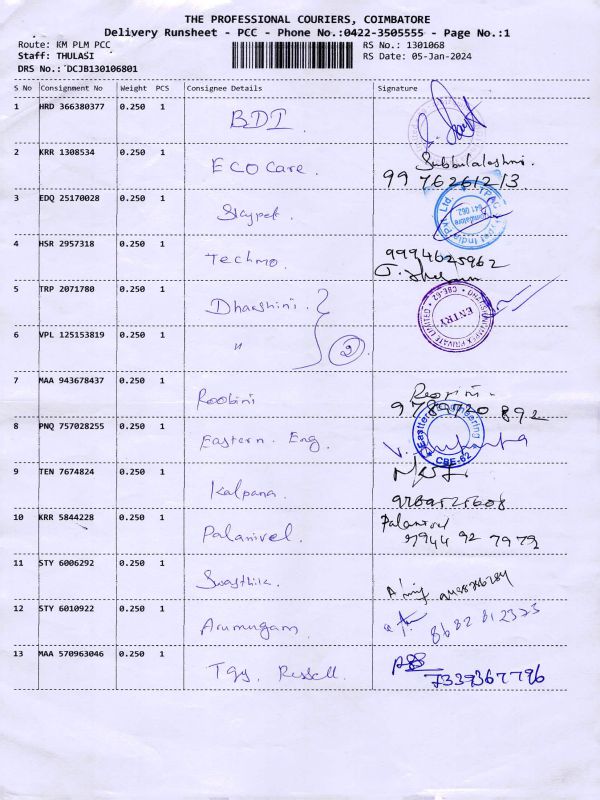 THE PROFESSIONAL COURIERS, COIMBATORE
Delivery Runsheet - PCC - Phone No.:0422-3505555 - Page No.:1
Route: KM PLM PCC RS No.: 1301068
Staff: THULASI RS Date: 05-Jan-2024
DRS No.: DCJB130106801
S No Consignment No Weight PCS Consignee Details Signature
1 HRD 366380377 0.250 1 BDI
2 KRR 1308534 0.250 1 ECO Care. Subbulakshmi.
9976261213
3 EDQ 25170028 0.250 1 Skypet.
4 HSR 2957318 0.250 1 Techmo. 9994625962
5 TRP 2071780 0.250 1 Dharshini ENTRY CBE-62
6 VPL 125153819 0.250 1 " 2
7 MAA 943678437 0.250 1 Roobini
9789720892
8 PNQ 757028255 0.250 1 Eastern. Eng. CBE-62
9 TEN 7674824 0.250 1 Kalpana.
10 KRR 5844228 0.250 1 Palanivel. Palanivel
7944 92 7979
11 STY 6006292 0.250 1 Swasthik.
12 STY 6010922 0.250 1 Arumugam. 8682812323
13 MAA 570963046 0.250 1 Tgy. Russell. 7339367796